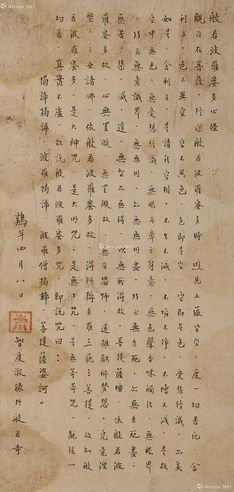 般若波羅蜜多心經
觀自在菩薩·行深般若波羅蜜多時·照見五蘊皆空·度一切苦厄·舍
利子·色不異空·空不異色·色即是空·空即是色·受想行識·亦復
如是·舍利子·是諸法空相·不生不滅·不垢不淨·不增不減·是故
空中無色·無受想行識·無眼耳鼻舌身意·無色聲香味觸法·無眼界
乃至無意識界·無無明·亦無無明盡·乃至無老死·亦無老死盡·
無苦集滅道·無智亦無得·以無所得故·菩提薩埵·依般若波
羅蜜多故·心無罣礙·無罣礙故·無有恐怖·遠離顛倒夢想·究竟涅
槃·三世諸佛·依般若波羅蜜多故·得阿耨多羅三藐三菩提·故知般
若波羅蜜多·是大神咒·是大明咒·是無上咒·是無等等咒·能除一
切苦·真實不虛·故說般若波羅蜜多咒·即說咒曰：
揭諦揭諦·波羅揭諦·波羅僧揭諦·菩提薩婆訶
鷄年四月八日
智度敬錄於般若寺